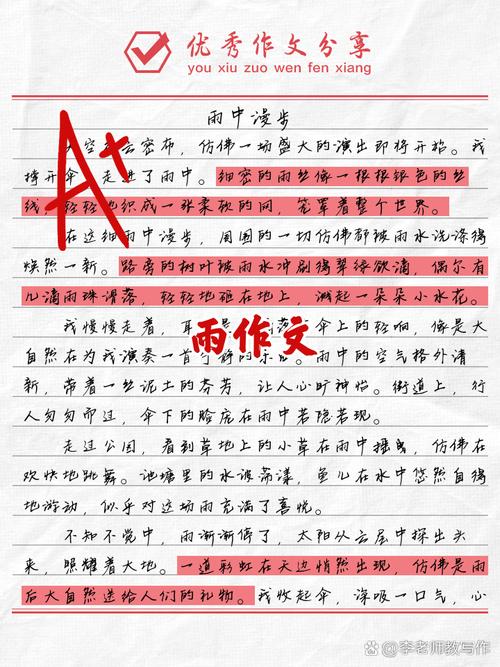 优秀作文分享
you xiu zuo wen fen xiang
雨中漫步
A+
空 云密布，仿佛一场盛大的演出即将开始。我
将开伞 走进了雨中。细密的雨丝像一根根银色的丝
线，轻轻地织成一张柔软的网，笼罩着整个世界。
在这细雨中漫步，周围的一切仿佛都被雨水洗涤得
焕然一新。路旁的树叶被雨水冲刷得翠绿欲滴，偶尔有
几滴雨珠滑落，轻轻地砸在地上，溅起一朵朵小水花。
我慢慢走着，耳 落 伞上的轻响，像是大
自然在为我演奏一首宁静的乐 。雨中的空气格外清
雨作文
新，带着一丝泥土的芬芳，让人心旷神怡。街道上，行
人匆匆而过，伞下的脸庞在雨中若隐若现。
走过公园，看到草地上的小草在雨中摇曳，仿佛在
欢快地跳舞。池塘里的水波荡漾，鱼儿在水中悠然自得
地游动，似乎对这场雨充满了喜悦。
不知不觉中，雨渐渐停了，太阳从云层中探出头
来，照耀着大地。一道彩虹在天边悄然出现，仿佛是雨
后大自然送给人们的礼物。我收起伞，深吸一口气，心
李老师教写作